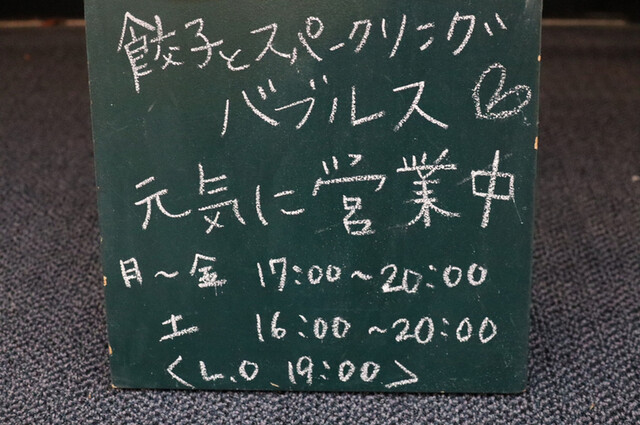 餃子とスパークリング
バブルス
元気に営業中
月〜金 17:00〜20:00
土 16:00〜20:00
<L.O 19:00>